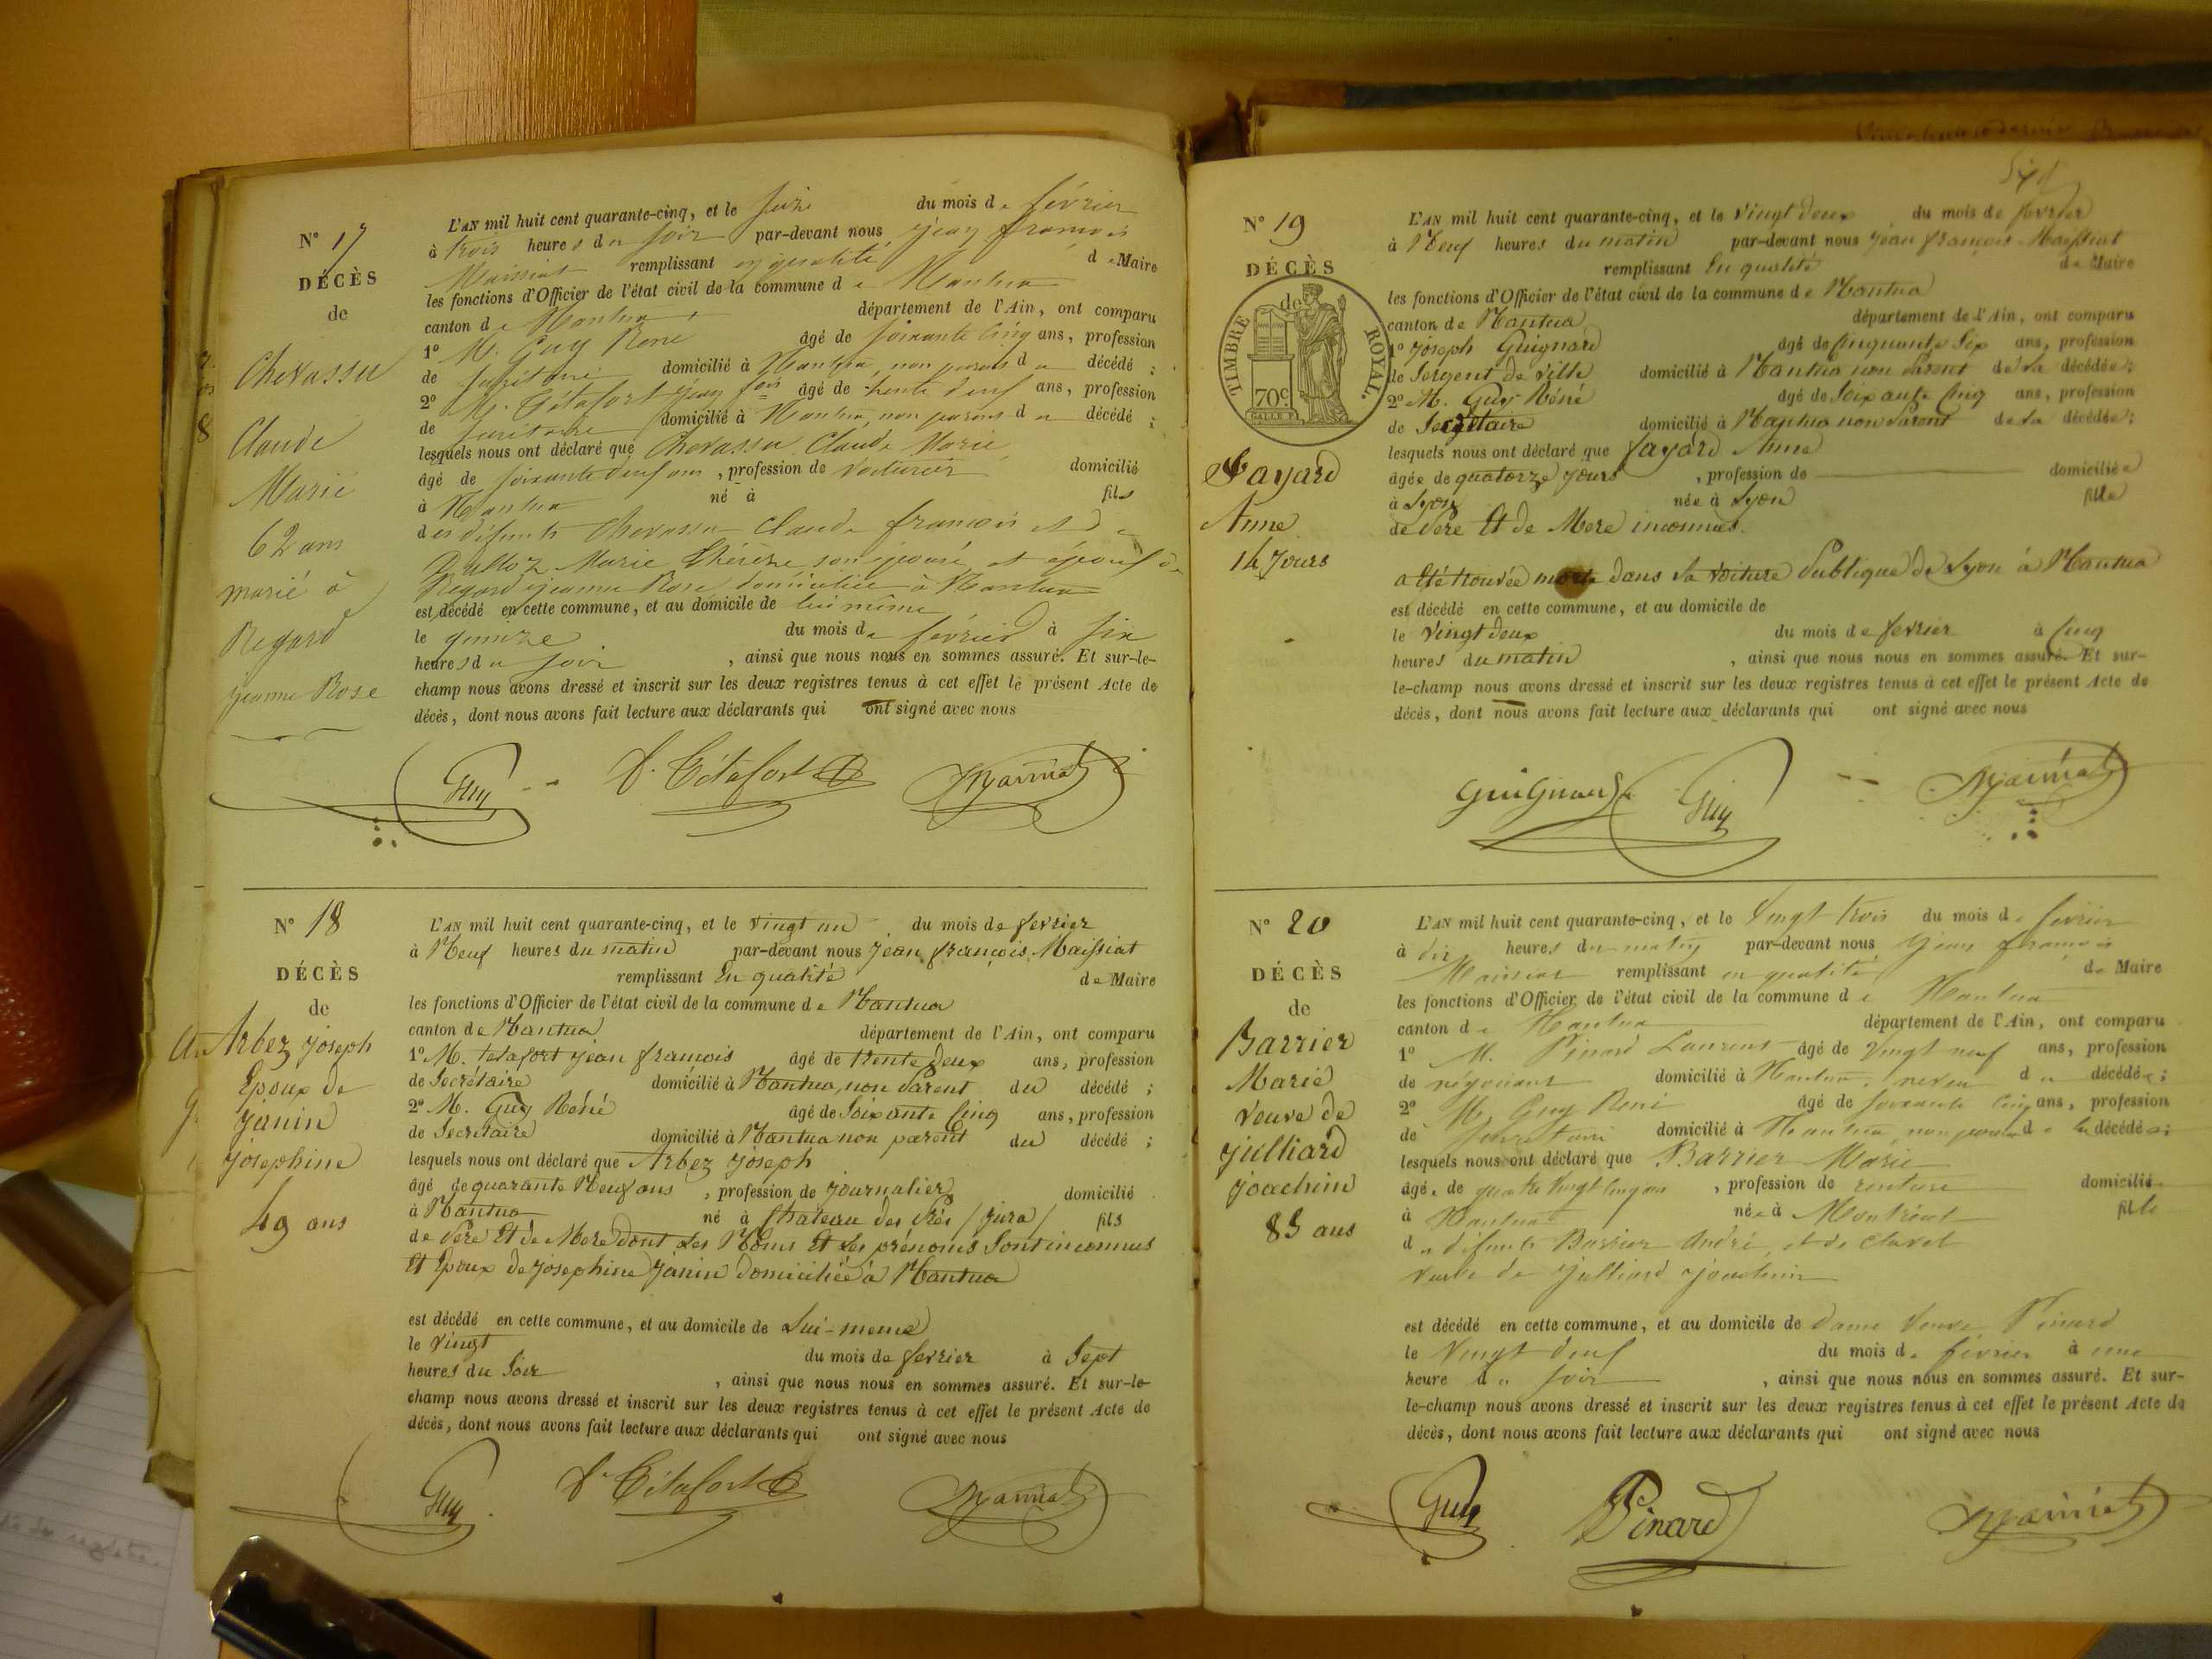 N° 17
DÉCÈS
de
Chevassu
Claude
Marie
62 ans
marié à
Regard
jeanne Rose
L'AN mil huit cent quarante-cinq, et le seize du mois de février
à trois heures du soir par-devant nous jean francois
Maissiat remplissant en qualité de Maire
les fonctions d'Officier de l'état civil de la commune de Nantua
canton de Nantua département de l'Ain, ont comparu
1° M. Guy René âgé de soixante cinq ans, profession
de secrétaire domicilié à Nantua, non parent du décédé ;
2° M. Tétafort jean fois âgé de trente deux ans, profession
de secrétaire domicilié à Nantua, non parent du décédé ;
lesquels nous ont déclaré que Chevassu Claude Marie,
âgé de soixante deux ans, profession de voiturier domicilié
à Nantua né à fils
des défunts Chevassu Claude françois et de
Marie Thérèse son épouse, et époux de
Regard jeanne Rose domiciliée à Nantua
est décédé en cette commune, et au domicile de lui même
le quinze du mois de février à six
heures du soir, ainsi que nous nous en sommes assuré. Et sur-le-
champ nous avons dressé et inscrit sur les deux registres tenus à cet effet le présent Acte de
décès, dont nous avons fait lecture aux déclarants qui ont signé avec nous
Guy Tétafort Maissiat
N° 18
DÉCÈS
de
Arbez joseph
Epoux de
janin
josephine
49 ans
L'AN mil huit cent quarante-cinq, et le vingt un du mois de fevrier
à Neuf heures du matin par-devant nous jean françois Maissiat
remplissant En qualité de Maire
les fonctions d'Officier de l'état civil de la commune de Nantua
canton de Nantua département de l'Ain, ont comparu
1° M. tetafort jean francois âgé de trente deux ans, profession
de Secrétaire domicilié à Nantua, non Parent du décédé ;
2° M. Guy Réné âgé de Soixante Cinq ans, profession
de Secretaire domicilié à Nantua non parent du décédé ;
lesquels nous ont déclaré que Arbez joseph
âgé de quarante Neuf ans, profession de journalier domicilié
à Nantua né à Chateau des Prés / jura / fils
de Père Et de Mere dont Les Noms Et Les prénoms Sont inconnus
Et Epoux de josephine janin domiciliée à Nantua
est décédé en cette commune, et au domicile de Lui-meme
le Vingt du mois de fevrier à Sept
heures du Soir, ainsi que nous nous en sommes assuré. Et sur-le-
champ nous avons dressé et inscrit sur les deux registres tenus à cet effet le présent Acte de
décès, dont nous avons fait lecture aux déclarants qui ont signé avec nous
Guy Tétafort Maissiat
N° 19
DÉCÈS
de
TIMBRE ROYAL.
70c
Fayard
Anne
14 jours
L'AN mil huit cent quarante-cinq, et le vingt deux du mois de fevrier
à Neuf heures du matin par-devant nous jean françois Maissiat
remplissant En qualité de Maire
les fonctions d'Officier de l'état civil de la commune de Nantua
canton de Nantua département de l'Ain, ont comparu
1° joseph Guignard âgé de Cinquante Six ans, profession
de Sergent de Ville domicilié à Nantua non Parent de La décédée ;
2° M. Guy Réné âgé de Soixante Cinq ans, profession
de Secretaire domicilié à Nantua non Parent de La décédée ;
lesquels nous ont déclaré que fayard Anne
âgée de quatorze jours, profession de domiciliée
à Lyon née à Lyon fille
de Pere Et de Mere inconnus.
a Eté trouvée morte dans La voiture Publique de Lyon à Nantua
est décédé en cette commune, et au domicile de
le Vingt deux du mois de fevrier à Cinq
heures du matin, ainsi que nous nous en sommes assuré. Et sur-
le-champ nous avons dressé et inscrit sur les deux registres tenus à cet effet le présent Acte de
décès, dont nous avons fait lecture aux déclarants qui ont signé avec nous
Guignard Guy Maissiat
N° 20
DÉCÈS
de
Barrier
Marie
veuve de
julliard
joachim
85 ans
L'AN mil huit cent quarante-cinq, et le Vingt trois du mois de février
à dix heures du matin par-devant nous jean françois
Maissiat remplissant en qualité de Maire
les fonctions d'Officier de l'état civil de la commune de Nantua
canton de Nantua département de l'Ain, ont comparu
1° M. Pinard Laurent âgé de Vingt neuf ans, profession
de négociant domicilié à Nantua, neveu de décédée ;
2° M. Guy René âgé de soixante cinq ans, profession
de secrétaire domicilié à Nantua, non parent de la décédée ;
lesquels nous ont déclaré que Barrier Marie
âgée de quatre vingt cinq ans, profession de rentière domiciliée
à Nantua née à Montréal fille
des défunts Barrier André, et de Clavel
veuve de julliard joachim
est décédé en cette commune, et au domicile de dame Veuve Pinard
le Vingt deux du mois de février à une
heure du soir, ainsi que nous nous en sommes assuré. Et sur-
le-champ nous avons dressé et inscrit sur les deux registres tenus à cet effet le présent Acte de
décès, dont nous avons fait lecture aux déclarants qui ont signé avec nous
Guy Pinard Maissiat